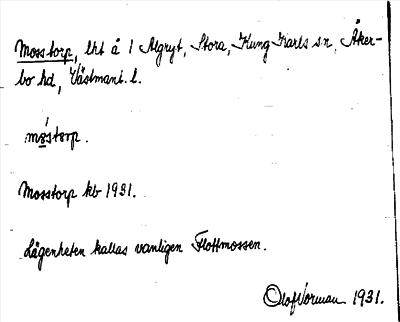 Mosstorp, lht å 1 Algryt, Stora, Kung Karls sn, Åker-
bo hd, Västmanl. l.
mòstorp.
Mosstorp kb 1931.
Lägenheten kallas vanligen Flottmossen.
Olof Norman 1931.